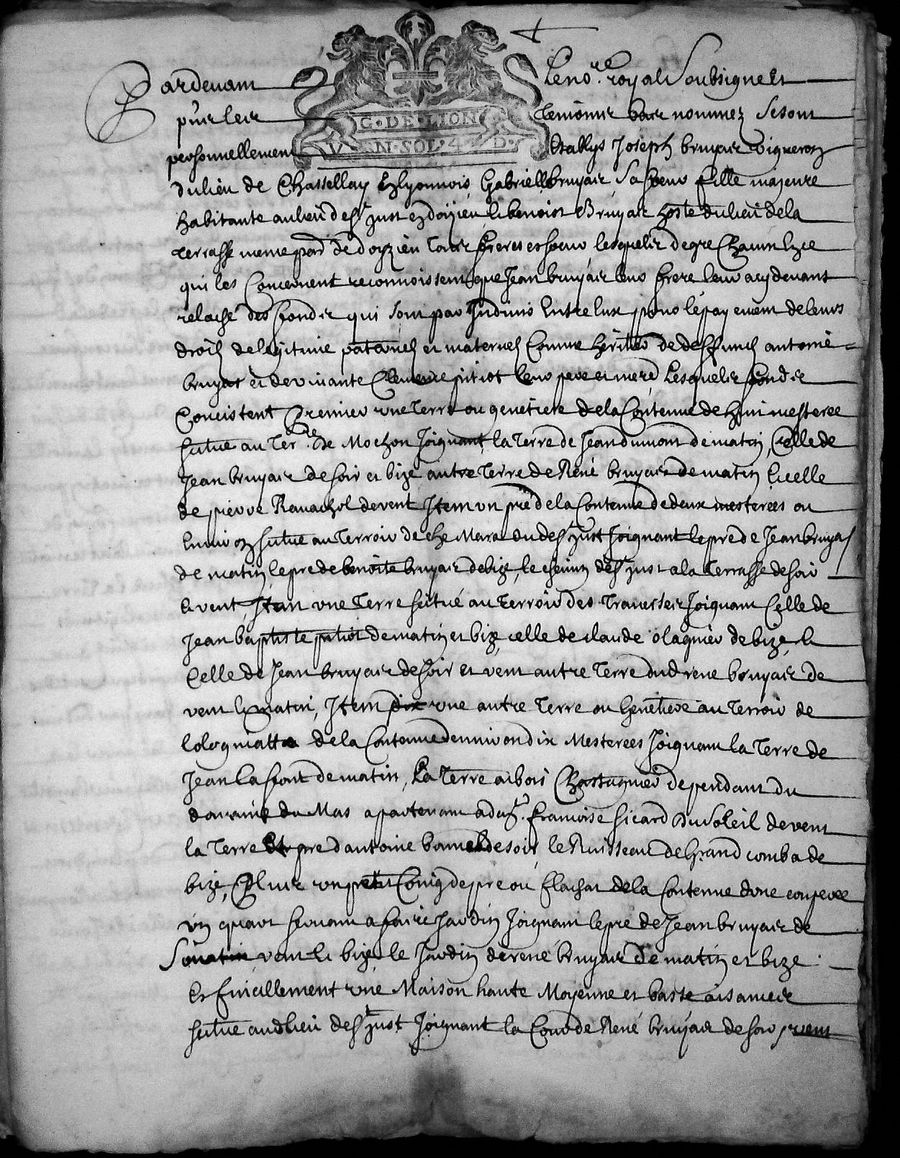 Pardevant Le no.re royal Soubsigne Et
temoins bas nommez Se sont
personnellement Establys Joseph bruyair vigneron
du lieu de Chassellay En lyonnois, Gabrielle bruyair Sa soeur fille majeure
habitante au lieu de St Just En doyzieu Et benoist Bruyair hoste du lieu de la
terrasse meme par. de doyzieu tous freres et soeur lesquels de gre
qui les Concernent reconnoissent que Jean bruyair leur frere leur a cy devant
relaché des fondz qui sont par Indivis Entre Eux pour le payement de leurs
droits de legitime paternels et maternels Comme heritier de deffunct antoine
bruyair et de vivante Clemence pitiot leurs pere et mere Lesquels fondz
Concistent Premier une Terre ou genetiere de la Contenue de huit mesterees
scitue au Ter.re de Mochon Joignant la Terre de Jean dumont de matin, Celle de
Jean bruyair de soir et bize autre Terre de René bruyair de matin Et celle
de pierre Ravachol de vent Item un pré de la Contenue de deux mesterees ou
Environ scitue au Terroir de St Just Joignant le pre de Jean bruyas
de matin le pre de benoite bruyair de bize, le chemin de St Just a la Terrasse de soir
Et vent Item une Terre scitué au terroir des Traverses Joignant Celle de
Jean baptiste pitiot de matin et bize, celle de claude olagnier de bize, Et
Celle de Jean bruyair de soir et vent autre Terre dud rene bruyair de
vent Et matin, Item une autre Terre ou Genetiere au Terroir de
de la Contenue d'environ dix Mesterees Joignant la Terre de
Jean la font de matin, La Terre ai bois Chastagnier dependant du
domaine du Mas apartenant a da.e Francoise Sicard Du Soleil de vent
la Terre Et pre d'antoine bonnel de soir le Ruisseau de Grand comba de
bize, Plus un petit Coing de pre ou flachat de la Contenue d'une coupee
un quart servant a faire Jardin Joignant le pre de Jean bruyair de
vent Et bize le Jardin de rené bruyair de matin et bize
Et finallement une Maison haute Moyenne et basse aisances
scitue aud lieu de St Just Joignant la Cour de René bruyair de soir
G·DE·LION
VN·SOL·4·D